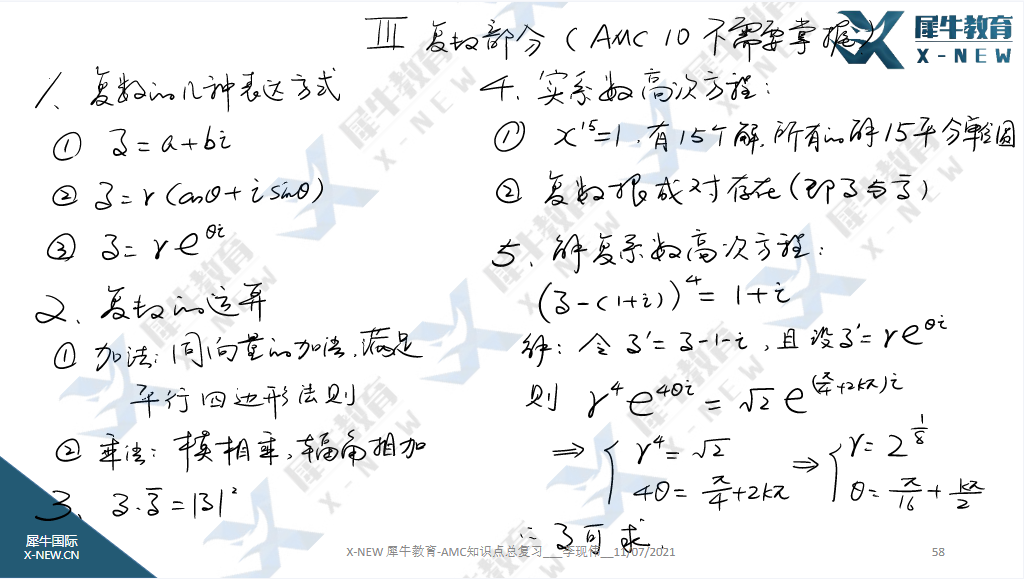 III 复数部分（AMC 10 不需要掌握）
犀牛教育
X-NEW
1、复数的几种表达方式
① z = a + bi
② z = r (cosθ + i sinθ)
③ z = r e^{θi}
2、复数的运算
① 加法：同向量的加法，满足
平行四边形法则
② 乘法：模相乘，辐角相加
3、z·z̄ = |z|²
4、实系数高次方程：
① x^{15} = 1，有15个解，所有的解15平分单位圆
② 复数根成对存在（即z与z̄）
5、解复系数高次方程：
(z-(1+i))^4 = 1+i
解：令 z' = z-1-i，且设 z' = r e^{θi}
则 r^4 e^{4θi} = √2 e^{(π/4+2kπ)i}
⇒ { r^4 = √2 ⇒ { r = 2^{1/8}
4θ = π/4 + 2kπ θ = π/16 + kπ/2
∴ z 可求.
犀牛国际
X-NEW.CN
X-NEW 犀牛教育-AMC知识点总复习___李现伟__11/07/2021
58